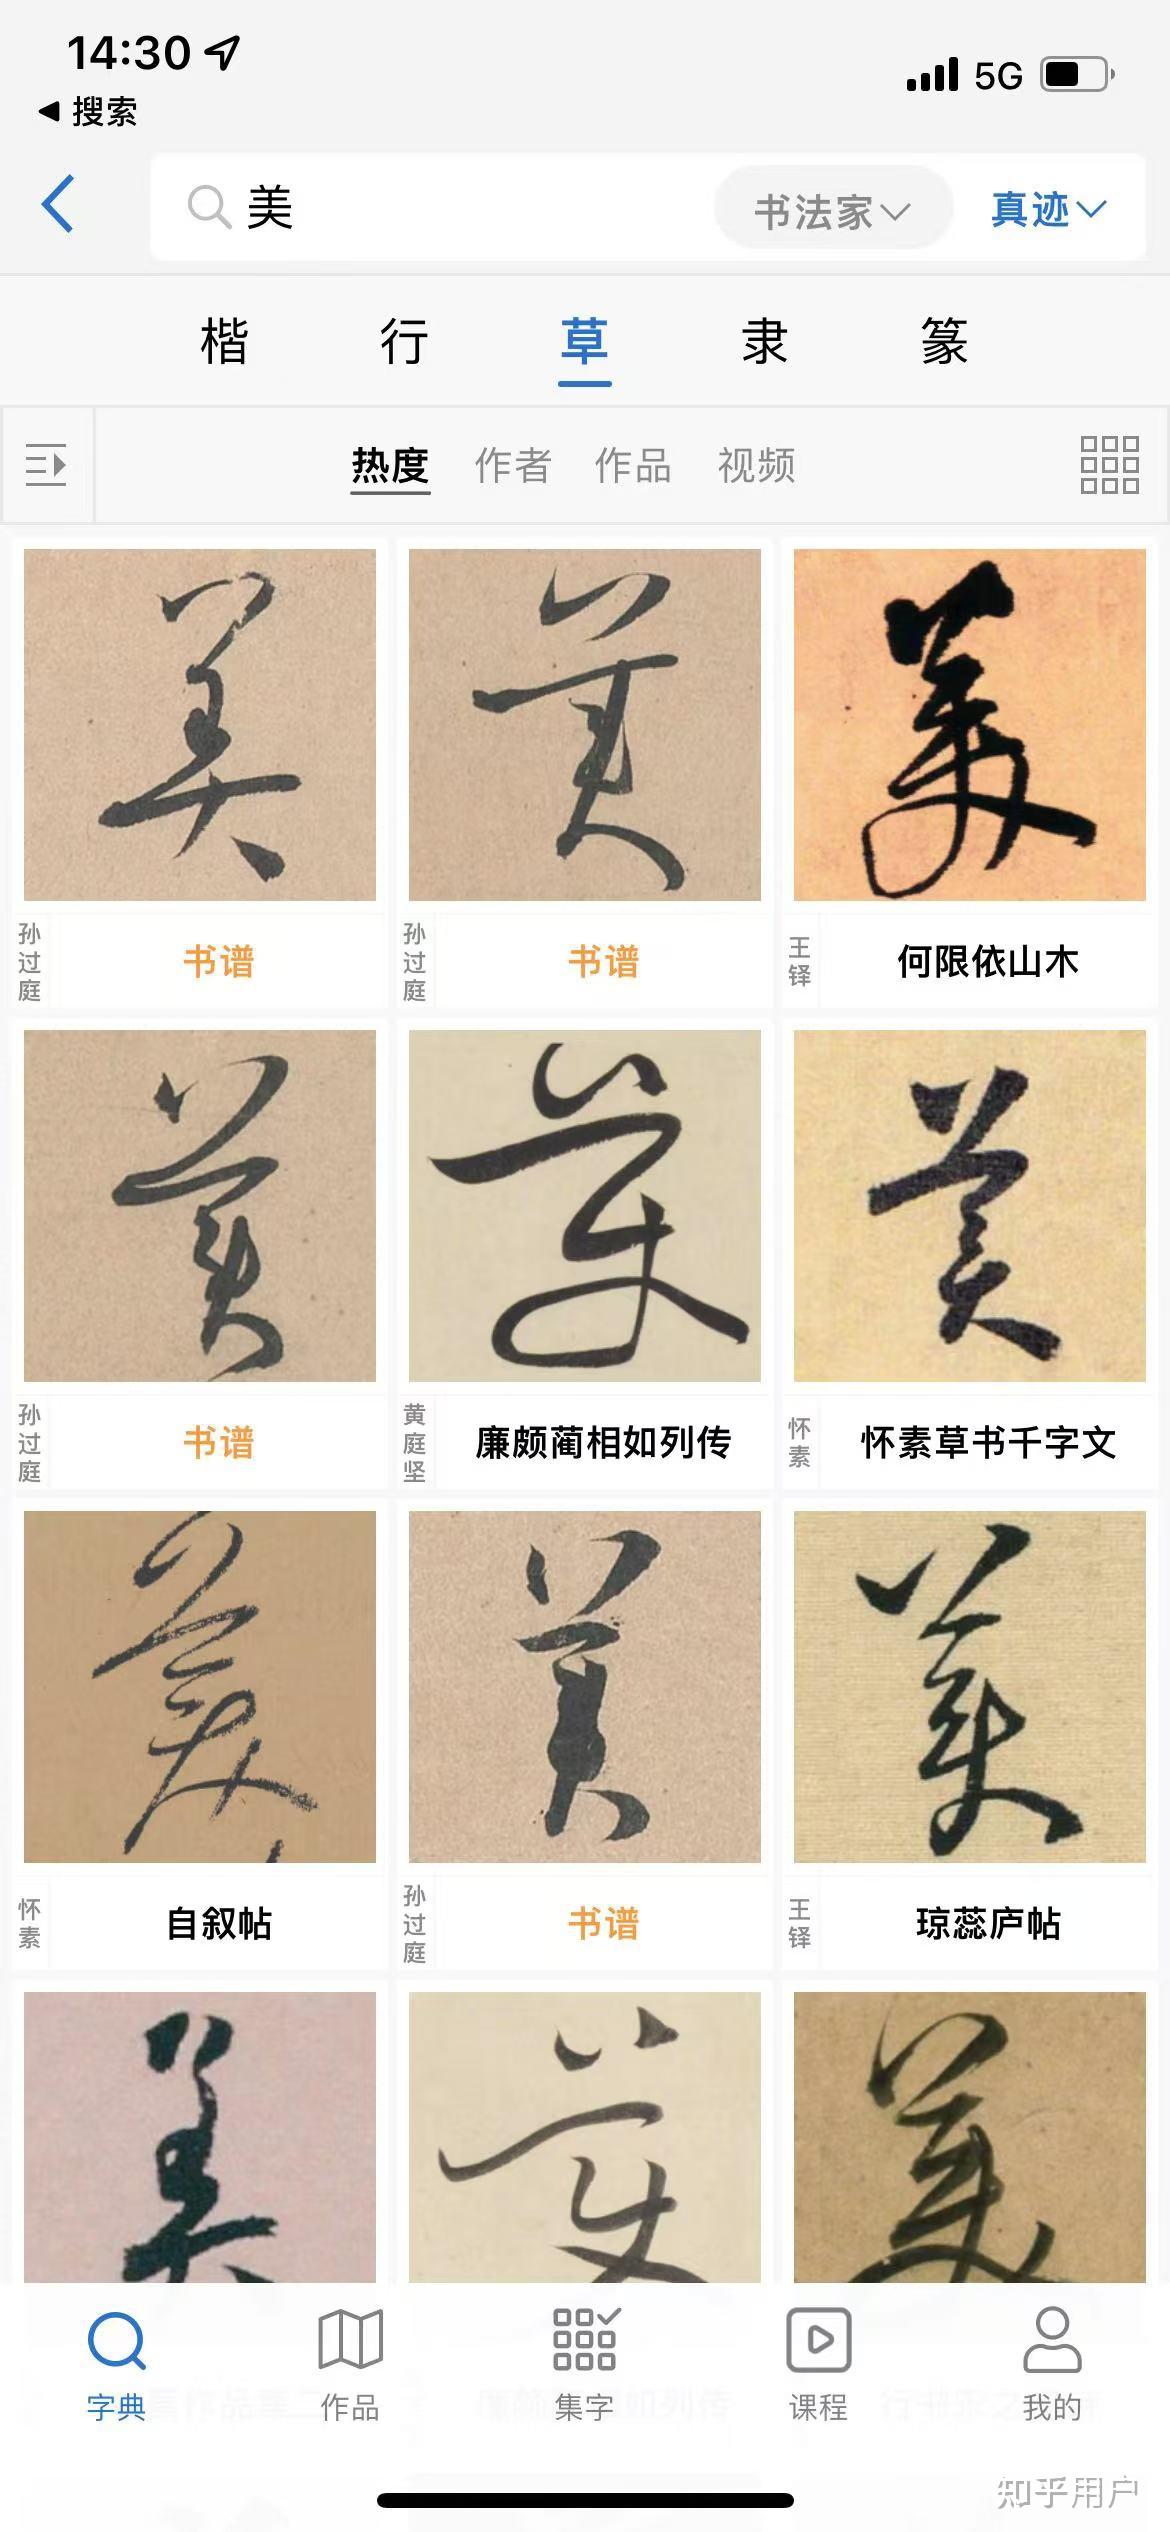 14:30
5G
搜索
美
书法家
真迹
楷 行 草 隶 篆
热度 作者 作品 视频
美 美 美
孙过庭 书谱
孙过庭 书谱
王铎 何限依山木
美 美 美
孙过庭 书谱
黄庭坚 廉颇蔺相如列传
怀素 怀素草书千字文
美 美 美
怀素 自叙帖
孙过庭 书谱
王铎 琼蕊庐帖
美 美 美
字典 作品 集字 课程 我的
知乎用户